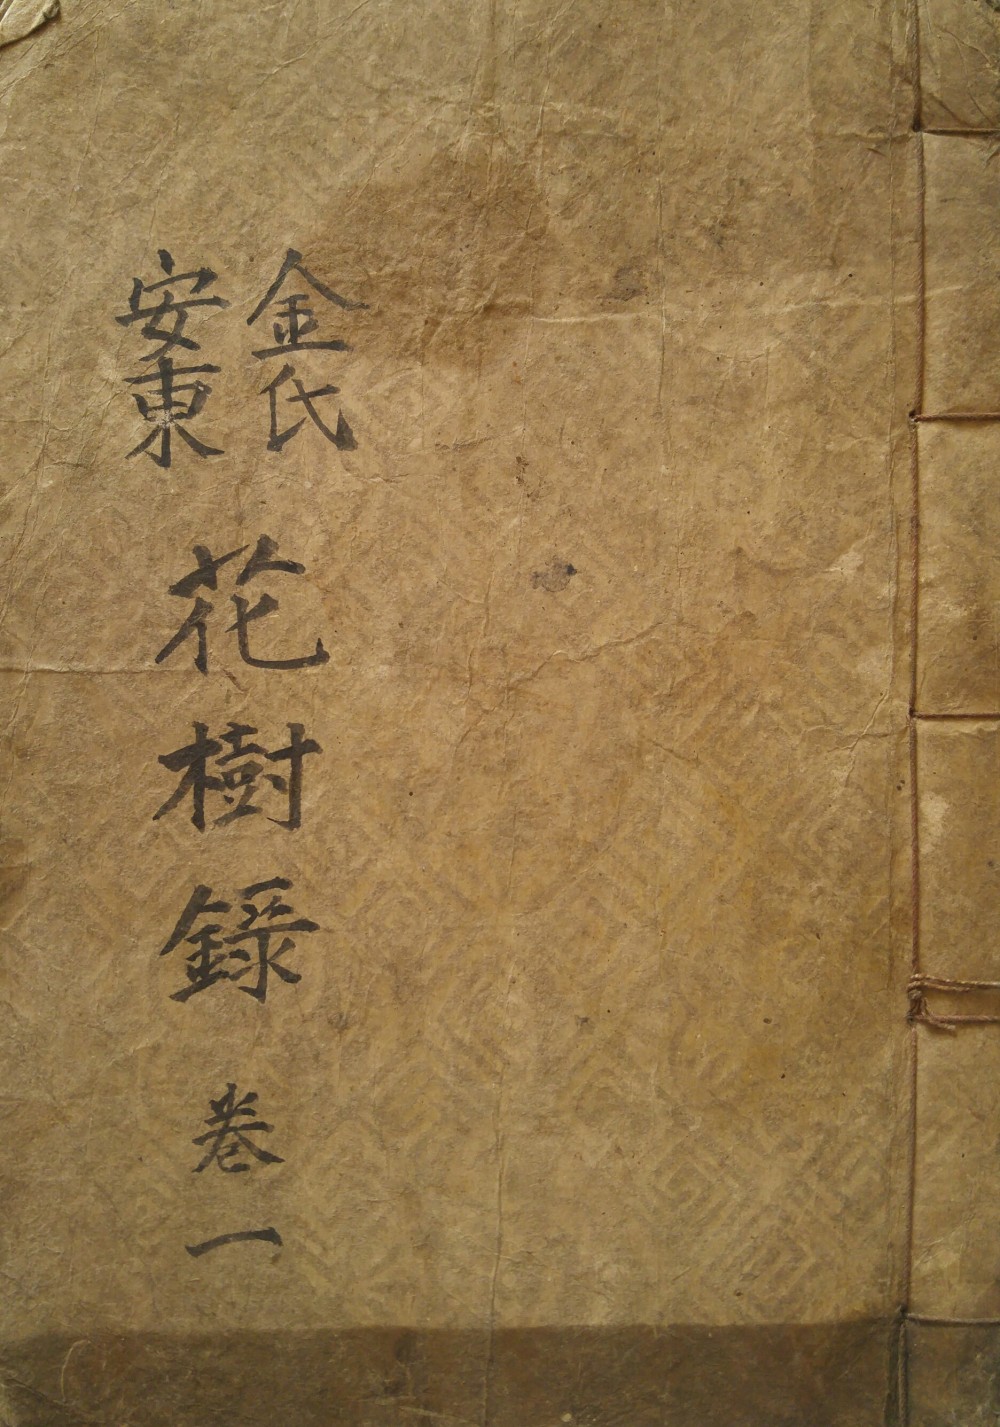 安東
金氏
花樹錄
卷一